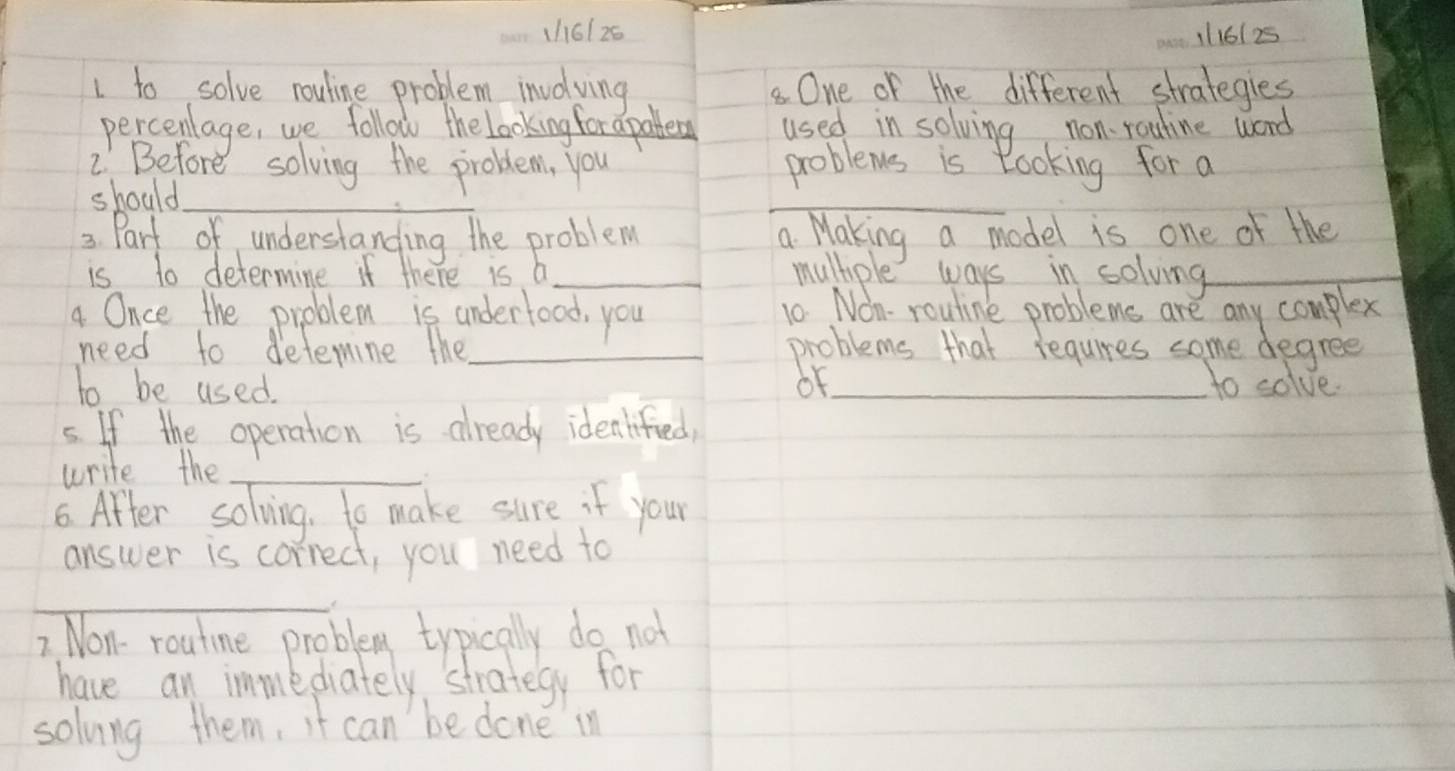 1/16/25
1 to solve routine problem involving
percentage, we follow the looking for a pattern
2. Before solving the problem, you
should____________.
3. Part of understanding the problem
is to determine if there is a______
4 Once the problem is undertood, you
need to detemine the__________
to be used.
5. If the operation is already identified,
write the________.
6. After solving, to make sure if your
answer is correct, you need to
____________.
7. Non-routine problem typically do not
have an immediately strategy for
solving them, it can be done in
1/16/25
8. One of the different strategies
used in solving non-routine word
problems is looking for a
__________
9. Making a model is one of the
multiple ways in solving________
10. Non-routine problems are any complex
problems that requires some degree
of________________to solve.